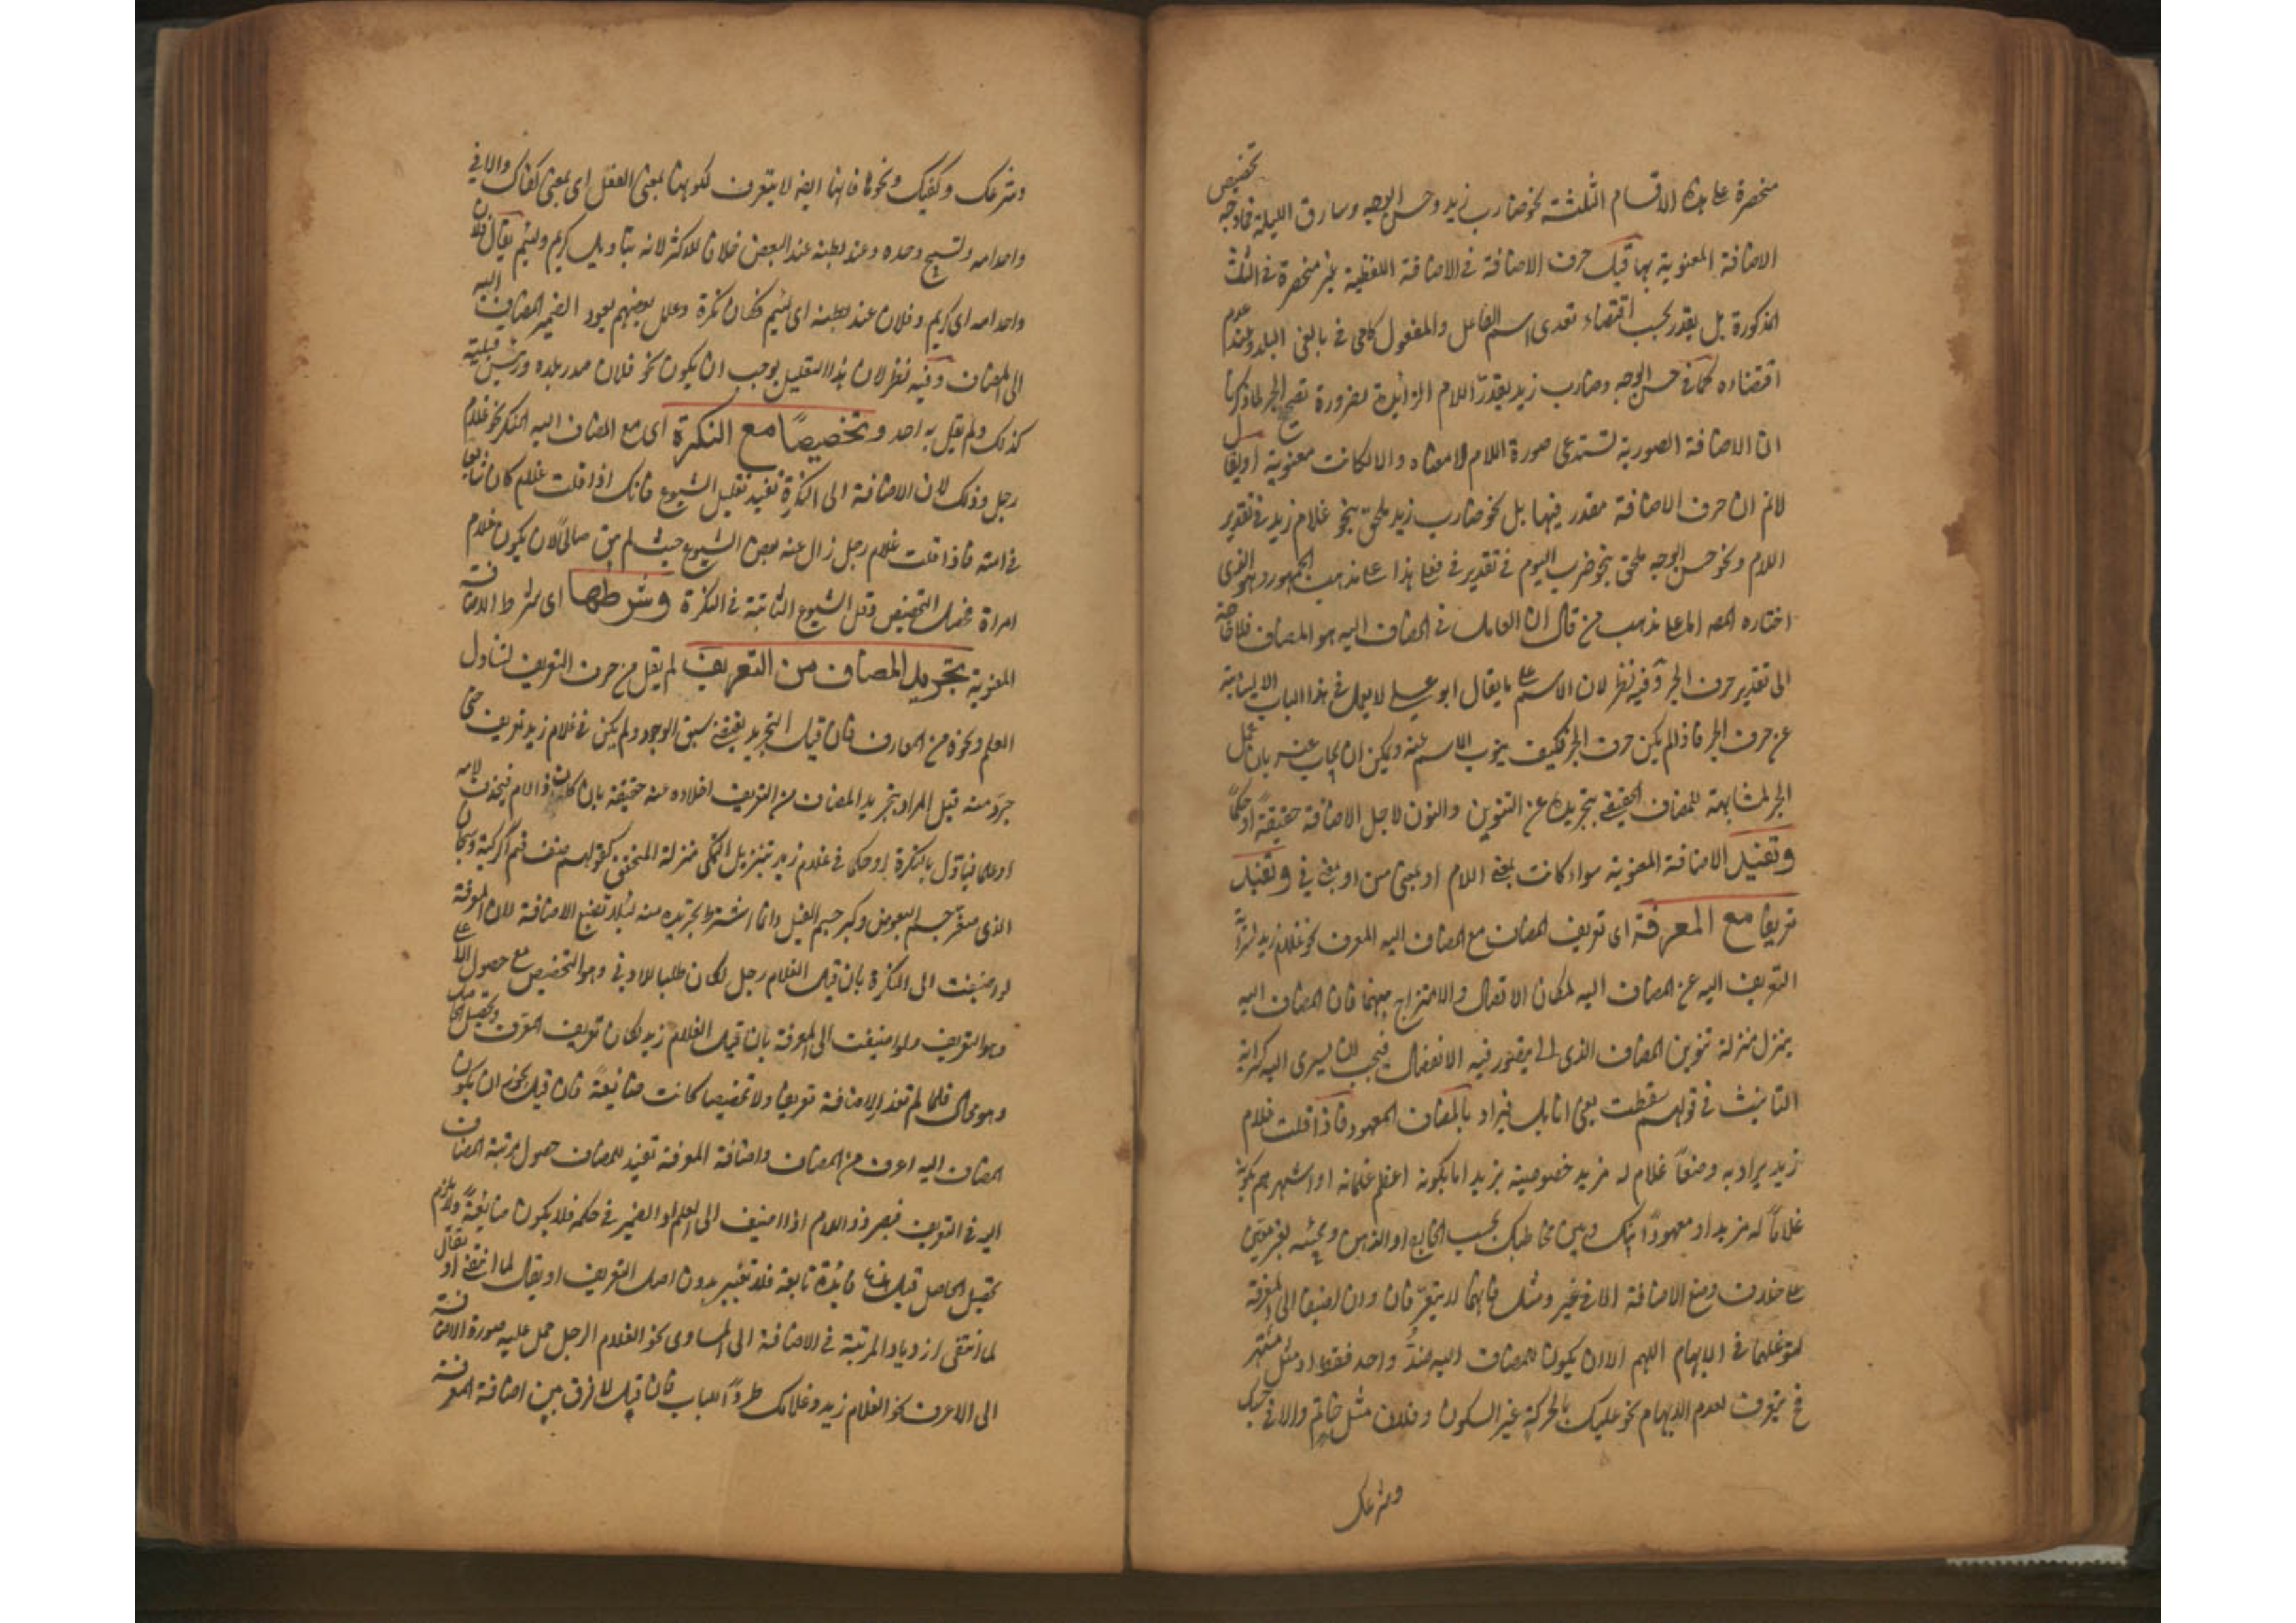 منحصرة على هذه الاقسام الثلثة نحو ضارب زيد وحسن الوجه وسارق الليلة فما وجه تخصيص
الاضافة المعنوية بها قيل حرف الاضافة في الاضافة اللفظية غير منحصرة في الثلث
المذكورة بل يقدر بحسب اقتضاء تعدى اسم الفاعل والمفعول كافى في بالغى البلد وعند عدم
اقتضاءه كما في حسن الوجه وضارب زيد يقدر اللام الزائدة لضرورة تصحيح الجر لما ذكرنا
ان الاضافة الصورية تستدعى صورة اللام لا معناه والا لكانت معنوية او يقال
لانم ان حرف الاضافة مقدر فيها بل نحو ضارب زيد ملحق بنحو غلام زيد في تقدير
اللام ونحو حسن الوجه ملحق بنحو ضرب اليوم في تقدير في فعلى هذا على مذهب الجمهور وهو الذى
اختاره المصه اما على مذهب من قال ان العامل في المضاف اليه هو المضاف فلا حاجة
الى تقدير حرف الجر وفيه نظر لان الاسم على ما يقال ابو على لا يعمل في هذا الباب الا لنيابة
عن حرف الجر فاذا لم يكن حرف الجر فكيف ينوب الاسم عنه ويمكن ان يجاب عنه بان عمل
الجر لمشابهة للمضاف الحقيقى بتجريده عن التنوين والنون لاجل الاضافة حقيقة او حكما
وتفيد الاضافة المعنوية سواء كانت بمعنى اللام او بمعنى من او بمعنى في وتفيد
تعريفا مع المعرفة اى تعريف المضاف مع المضاف اليه المعرف نحو غلام زيد لسراية
التعريف اليه عن المضاف اليه لمكان الاتصال والامتزاج بينهما فان المضاف اليه
ينزل منزلة تنوين المضاف الذى لا يتصور فيه الانفصال فيجب ان يسرى اليه كسراية
التانيث في قولهم سقطت بعض انامله فيراد بالمضاف المعهود فاذا قلت غلام
زيد يراد به وضعا غلام له مزيد خصوصية بزيد اما بكونه اعظم غلمانه او اشهرهم بكونه
غلاما له مزيد او معهودا بينك وبين مخاطبك بحسب الخارج او الذهن ومجيئه لغير معين
على خلاف وضع الاضافة الا في غير ومثل فانهما لا يتعرفان وان اضيفا الى المعرفة
لتوغلهما في الابهام اللهم الا ان يكون للمضاف اليه ضد واحد فقط او مثل مشتهر
فح يتعرف لعدم الابهام نحو عليك بالحركة غير السكون وفلان مثل حاتم والا في حسبك
وشرعك
وشرعك وكفيك ونحوها فانها ايضا لا يتعرف لكونها بمعنى الفعل اى بمعنى كفاك والا في
واحد امه ونسيج وحده وعبد بطنه عند البعض خلافا للاكثر لانه بتاويل كريم ولئيم يقال فلان
واحد امه اى كريم وفلان عبد بطنه اى لئيم فكان نكرة وعلل بعضهم بعود الضمير المضاف اليه
الى المضاف وفيه نظر لان هذا التعليل يوجب ان يكون نحو فلان صدر بلده ورئيس قبيلته
كذلك ولم يقل به احد وتخصيصا مع النكرة اى مع المضاف اليه المنكر نحو غلام
رجل وذلك لان الاضافة الى النكرة تفيد تقليل الشيوع فانك اذا قلت غلام كان شايعا
في امته فاذا قلت غلام رجل زال عنه بعض الشيوع حيث لم يبق صالحا لان يكون غلام
امراة فحصل التخصيص وقل الشيوع الثابتة في النكرة وشرطها اى شرط الاضافة
المعنوية تجريد المضاف من التعريف لم يقل من حرف التعريف ليتناول
العلم ونحوه من المعارف فان قيل التجريد يقتضى سبق الوجود ولم يكن في غلام زيد تعريف حتى
جرد منه قيل المراد بتجريد المضاف من التعريف اخلاده عنه حقيقة بان كان ذو اللام فيحذف لامه
او علما فياول بالنكرة او حكما في غلام زيد بتنزيل الممكن منزلة المتحقق كقولهم ضيق فم الركية وسبحان
الذى صغر جسم البعوض وكبر جسم الفيل وانما اشترط تجريده منه لئلا تضيع الاضافة لان المعرفة
لو اضيفت الى النكرة بان قيل الغلام رجل لكان طلبا للادنى وهو التخصيص مع حصول الاعلى
وهو التعريف ولو اضيفت الى المعرفة بان قيل الغلام زيد لكان تعريف المعرف وتحصيل الحاصل
وهو محال فلما لم تفد الاضافة تعريفا ولا تخصيصا كانت ضائعة فان قيل يجوز ان يكون
المضاف اليه اعرف من المضاف واضافة المعرفة تفيد للمضاف حصول مرتبة المضاف
اليه في التعريف فيصير ذو اللام اذا اضيف الى العلم او الضمير في حكمه فلا يكون ضائعة ولا يلزم
تحصيل الحاصل قيل هذا فائدة تابعة فلا تعتبر بدون اصل التعريف او يقال لما انتفى او يقال
لما انتفى ازدياد المرتبة في الاضافة الى المساوى نحو الغلام الرجل حمل عليه صورة الاضافة
الى الاعرف نحو الغلام زيد وغلامك طردا للباب فان قيل لا فرق بين اضافة المعرفة